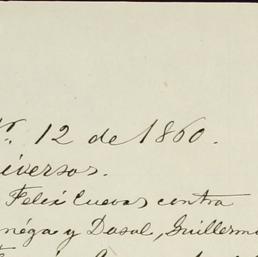 Nº. 12 de 1860.
iversos.
Felix Cuevas contra
néga y Dosal, Guillermo